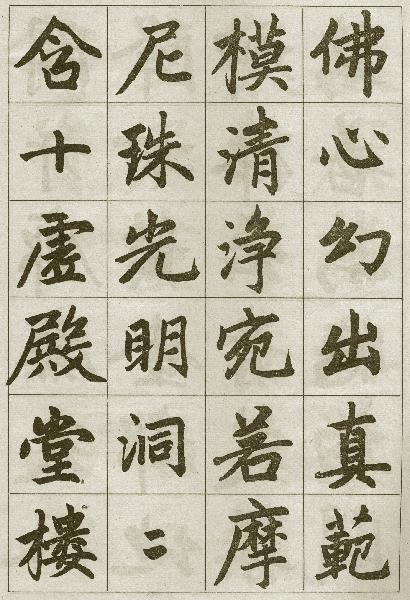 佛心幻出真範
模清浄宛若摩
尼珠光明洞二
含十虚殿堂樓